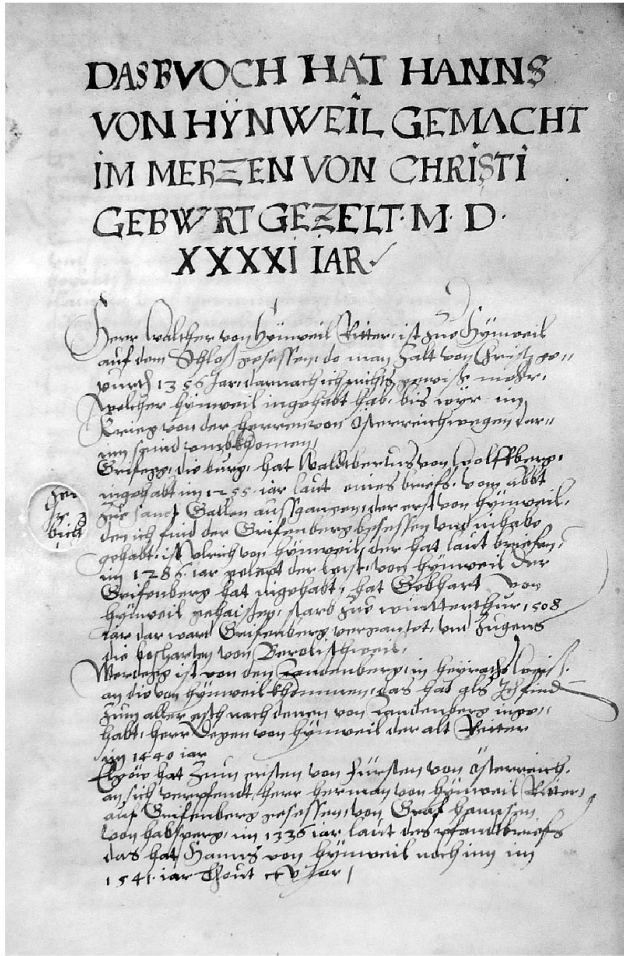 DAS BVOCH HAT HANNS
VON HŸNWEIL GEMACHT
IM MERZEN VON CHRISTI
GEBWRT GEZELT · M · D ·
XXXXI IAR
Herr Walcher von Hÿnweil Ritter, ist zue Hÿnweil
auf dem Schloß gesessen, do man zalt von Christ ge-
purd 1356 Jar, darnach ich nichts gewiß mehr,
welcher hÿnweil ingehabt hab, bis wyr im
Krieg von der herren von Österreich wegen dar-
umb khomen,
Grifenberg, die burg, hat Waltbertus von Wolffberg,
ingehabt im 1255 iar laut eines briefs, vom abbt
zue sanct Gallen aussgangen, der erst von hÿnweil,
den ich find der Grifenberg besessen und inhabe
gehabt, ist Ulrich von hÿnweil, der hat laut briefen,
im 1285 iar gelept der letst, von hÿnweil der
Grifenberg hat ingehabt, hat Gebhart von
hÿnweil gehaissen, starb zue wintterthur, 1508
iar dar ward Grifenberg verganntet, und zugens
die von
Werdegg ist von den Landenberg, in heyrats
an die von hÿnweil khommen, das hat als ich find
zum aller erst nach denen von Landenberg inge-
habt, herr von hÿnweil der alt Ritter
im 1440 iar
Elgöw hat zum ersten von fürsten von Österreich,
an sich verpfendt, herr herman von hÿnweil Ritter,
auf Grifenberg gesessen, von Graf hannsen
von habsperg, im 1336 iar laut des pfandbriefs
das hat Hanns von hÿnweil noch inn im
1541 iar